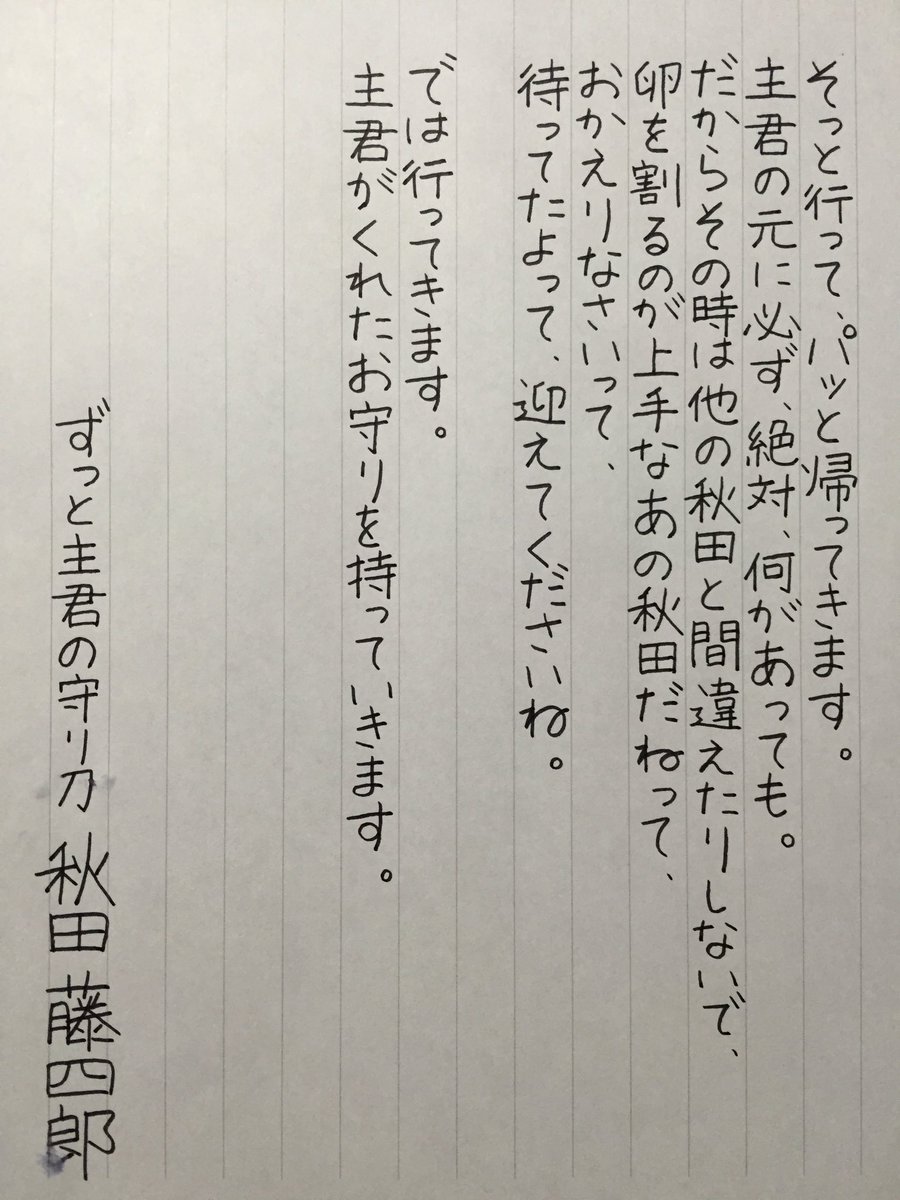 そっと行って、パッと帰ってきます。
主君の元に必ず、絶対、何があっても。
だからその時は他の秋田と間違えたりしないで、
卵を割るのが上手なあの秋田だねって、
おかえりなさいって、
待ってたよって、迎えてくださいね。
では行ってきます。
主君がくれたお守りを持っていきます。
ずっと主君の守り刀 秋田藤四郎